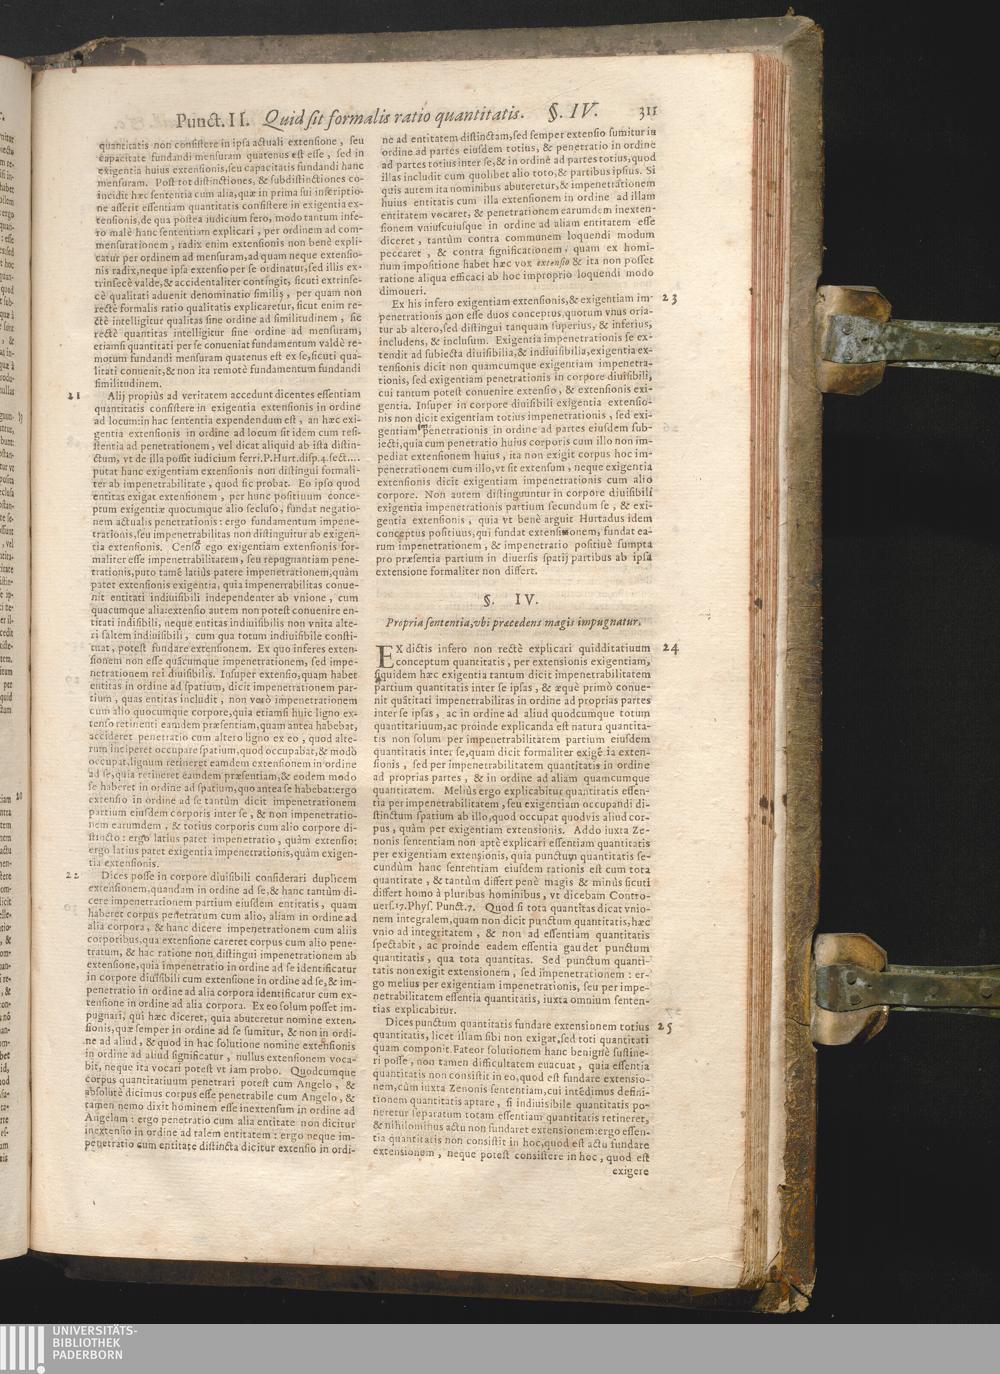 Punct. II. Quid sit formalis ratio quantitatis. §. IV. 311
quantitatis non consistere in ipsa actuali extensione, seu
capacitate fundandi mensuram quatenus est esse, sed in
exigentia huius extensionis, seu capacitatis fundandi hanc
mensuram. Post tot distinctiones, & subdistinctiones co-
incidit hæc sententia cum alia, quæ in prima sui inscriptio-
ne asserit essentiam quantitatis consistere in exigentia ex-
tensionis, de qua postea iudicium fero, modo tantum infe-
ro malè hanc sententiam explicari, per ordinem ad com-
mensurationem, radix enim extensionis non benè expli-
catur per ordinem ad mensuram, ad quam neque extensio-
nis radix, neque ipsa extensio per se ordinatur, sed illis ex-
trinsecè valde, & accidentaliter contingit, sicuti extrinse-
cè qualitati aduenit denominatio similis, per quam non
rectè formalis ratio qualitatis explicaretur, sicut enim re-
ctè intelligitur qualitas sine ordine ad similitudinem, sic
rectè quantitas intelligitur sine ordine ad mensuram,
etiamsi quantitati per se conueniat fundamentum valdè re-
motum fundandi mensuram quatenus est ex se, sicuti qua-
litati conuenit, & non ita remotè fundamentum fundandi
similitudinem.
21 Alij propiùs ad veritatem accedunt dicentes essentiam
quantitatis consistere in exigentia extensionis in ordine
ad locum: in hac sententia expendendum est, an hæc exi-
gentia extensionis in ordine ad locum sit idem cum resi-
stentia ad penetrationem, vel dicat aliquid ab ista distin-
ctum, vt de illa possit iudicium ferri. P. Hurt. disp. 4. sect....
putat hanc exigentiam extensionis non distingui formali-
ter ab impenetrabilitate, quod sic probat. Eo ipso quod
entitas exigat extensionem, per hunc positiuum conce-
ptum exigentiæ quocumque alio secluso, fundat negatio-
nem actualis penetrationis: ergo fundamentum impene-
trationis, seu impenetrabilitas non distinguitur ab exigen-
tia extensionis. Censeo ego exigentiam extensionis for-
maliter esse impenetrabilitatem, seu repugnantiam pene-
trationis, puto tamē latiùs patere impenetrationem, quàm
patet extensionis exigentia, quia impenetrabilitas conue-
nit entitati indiuisibili independenter ab vnione, cum
quacumque alia: extensio autem non potest conuenire en-
titati indiuisibili, neque entitas indiuisibilis non vnita alte-
ri saltem indiuisibili, cum qua totum indiuisibile consti-
tuat, potest fundare extensionem. Ex quo inferes exten-
sionem non esse quàcumque impenetrationem, sed impe-
netrationem rei diuisibilis. Insuper extensio, quam habet
entitas in ordine ad spatium, dicit impenetrationem par-
tium, quas entitas includit, non verò impenetrationem
cum alio quocumque corpore, quia etiamsi huic ligno ex-
tenso retinenti eamdem præsentiam, quam antea habebat,
accideret penetratio cum altero ligno ex eo, quod alte-
rum inciperet occupare spatium, quod occupabat, & modò
occupat, lignum retineret eamdem extensionem in ordine
ad se, quia retineret eamdem præsentiam, & eodem modo
se haberet in ordine ad spatium, quo antea se habebat: ergo
extensio in ordine ad se tantùm dicit impenetrationem
partium eiusdem corporis inter se, & non impenetratio-
nem earumdem, & totius corporis cum alio corpore di-
stincto: ergo latius patet impenetratio, quàm extensio:
ergo latius patet exigentia impenetrationis, quàm exigen-
tia extensionis.
22 Dices posse in corpore diuisibili considerari duplicem
extensionem, quandam in ordine ad se, & hanc tantùm di-
cere impenetrationem partium eiusdem entitatis, quam
haberet corpus penetratum cum alio, aliam in ordine ad
alia corpora, & hanc dicere impenetrationem cum aliis
corporibus, qua extensione careret corpus cum alio pene-
tratum, & hac ratione non distingui impenetrationem ab
extensione, quia impenetratio in ordine ad se identificatur
in corpore diuisibili cum extensione in ordine ad se, & im-
penetratio in ordine ad alia corpora identificatur cum ex-
tensione in ordine ad alia corpora. Ex eo solum posset im-
pugnari, qui hæc diceret, quia abuteretur nomine exten-
sionis, quæ semper in ordine ad se sumitur, & non in ordi-
ne ad aliud, & quod in hac solutione nomine extensionis
in ordine ad aliud significatur, nullus extensionem voca-
bit, neque ita vocari potest vt iam probo. Quodcumque
corpus quantitatiuum penetrari potest cum Angelo, &
absolutè dicimus corpus esse penetrabile cum Angelo, &
tamen nemo dixit hominem esse inextensum in ordine ad
Angelum: ergo penetratio cum alia entitate non dicitur
inextensio in ordine ad talem entitatem: ergo neque im-
penetratio cum entitate distincta dicitur extensio in ordi-
ne ad entitatem distinctam, sed semper extensio sumitur in
ordine ad partes eiusdem totius, & penetratio in ordine
ad partes totius inter se, & in ordinē ad partes totius, quod
illas includit cum quolibet alio toto, & partibus ipsius. Si
quis autem ita nominibus abuteretur, & impenetrationem
huius entitatis cum illa extensionem in ordine ad illam
entitatem vocaret, & penetrationem earumdem inexten-
sionem vniuscuiusque in ordine ad aliam entitatem esse
diceret, tantùm contra communem loquendi modum
peccaret, & contra significationem, quam ex homi-
num impositione habet hæc vox extensio & ita non posset
ratione aliqua efficaci ab hoc improprio loquendi modo
dimoueri.
Ex his infero exigentiam extensionis, & exigentiam im- 23
penetrationis non esse duos conceptus, quorum vnus oria-
tur ab altero, sed distingui tanquam superius, & inferius,
includens, & inclusum. Exigentia impenetrationis se ex-
tendit ad subiecta diuisibilia, & indiuisibilia, exigentia ex-
tensionis dicit non quamcumque exigentiam impenetra-
tionis, sed exigentiam penetrationis in corpore diuisibili,
cui tantum potest conuenire extensio, & extensionis exi-
gentia. Insuper in corpore diuisibili exigentia extensio-
nis non dicit exigentiam totius impenetrationis, sed exi-
gentiam im penetrationis in ordine ad partes eiusdem sub-
iecti, quia cum penetratio huius corporis cum illo non im-
pediat extensionem huius, ita non exigit corpus hoc im-
penetrationem cum illo, vt sit extensum, neque exigentia
extensionis dicit exigentiam impenetrationis cum alio
corpore. Non autem distinguuntur in corpore diuisibili
exigentia impenetrationis partium secundum se, & exi-
gentia extensionis, quia vt benè arguit Hurtadus idem
conceptus positiuus, qui fundat extensionem, fundat ea-
rum impenetrationem, & impenetratio positiuè sumpta
pro præsentia partium in diuersis spatij partibus ab ipsa
extensione formaliter non differt.
§. IV.
Propria sententia, vbi præcedens magis impugnatur.
EX dictis infero non rectè explicari quidditatiuum 24
conceptum quantitatis, per extensionis exigentiam,
siquidem hæc exigentia tantum dicit impenetrabilitatem
partium quantitatis inter se ipsas, & æquè primò conue-
nit quātitati impenetrabilitas in ordine ad proprias partes
inter se ipsas, ac in ordine ad aliud quodcumque totum
quantitatiuum, ac proinde explicanda est natura quantita-
tis non solum per impenetrabilitatem partium eiusdem
quantitatis inter se, quam dicit formaliter exigētia exten-
sionis, sed per impenetrabilitatem quantitatis in ordine
ad proprias partes, & in ordine ad aliam quamcumque
quantitatem. Meliùs ergo explicabitur quantitatis essen-
tia per impenetrabilitatem, seu exigentiam occupandi di-
stinctum spatium ab illo, quod occupat quodvis aliud cor-
pus, quàm per exigentiam extensionis. Addo iuxta Ze-
nonis sententiam non aptè explicari essentiam quantitatis
per exigentiam extensionis, quia punctum quantitatis se-
cundùm hanc sententiam eiusdem rationis est cum tota
quantitate, & tantùm differt penè magis & minùs sicuti
differt homo à pluribus hominibus, vt dicebam Contro-
uers. 17. Phys. Punct. 7. Quod si tota quantitas dicat vnio-
nem integralem, quam non dicit punctum quantitatis, hæc
vnio ad integritatem, & non ad essentiam quantitatis
spectabit, ac proinde eadem essentia gaudet punctum
quantitatis, qua tota quantitas. Sed punctum quanti-
tatis non exigit extensionem, sed impenetrationem: er-
go melius per exigentiam impenetrationis, seu per impe-
netrabilitatem essentia quantitatis, iuxta omnium senten-
tias explicabitur.
Dices punctum quantitatis fundare extensionem totius 25
quantitatis, licet illam sibi non exigat, sed toti quantitati
quam componit. Fateor solutionem hanc benignè sustine-
ri posse, non tamen difficultatem euacuat, quia essentia
quantitatis non consistit in eo, quod est fundare extensio-
nem, cùm iuxta Zenonis sententiam, cui intēdimus defini-
tionem quantitatis aptare, si indiuisibile quantitatis po-
neretur separatum totam essentiam quantitatis retineret,
& nihilominus actu non fundaret extensionem: ergo essen-
tia quantitatis non consistit in hoc, quod est actu fundare
extensionem, neque potest consistere in hoc, quod est
exigere
UNIVERSITÄTS-
BIBLIOTHEK
PADERBORN